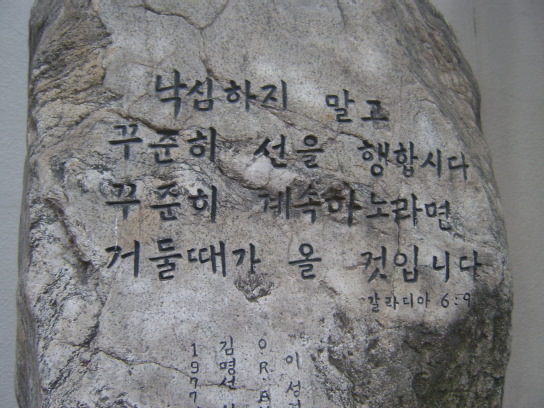 낙심하지 말고
꾸준히 선을 행합시다
꾸준히 계속하노라면
거둘때가 올 것입니다
갈라디아 6:9
1977
김명선
O.R.A
이성